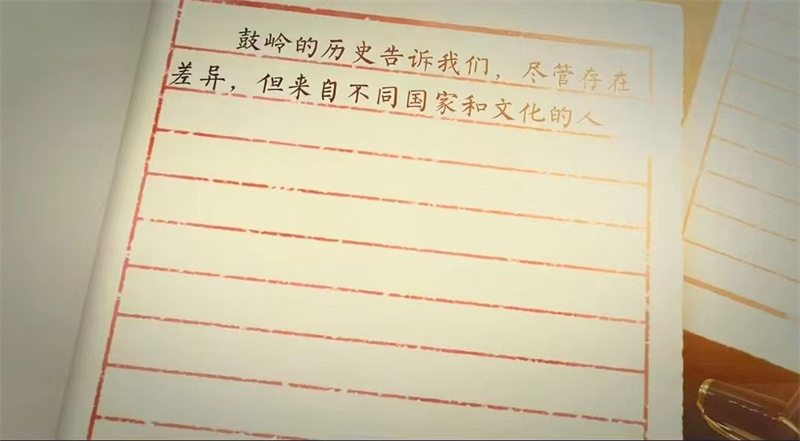 鼓岭的历史告诉我们，尽管存在
差异，但来自不同国家和文化的人